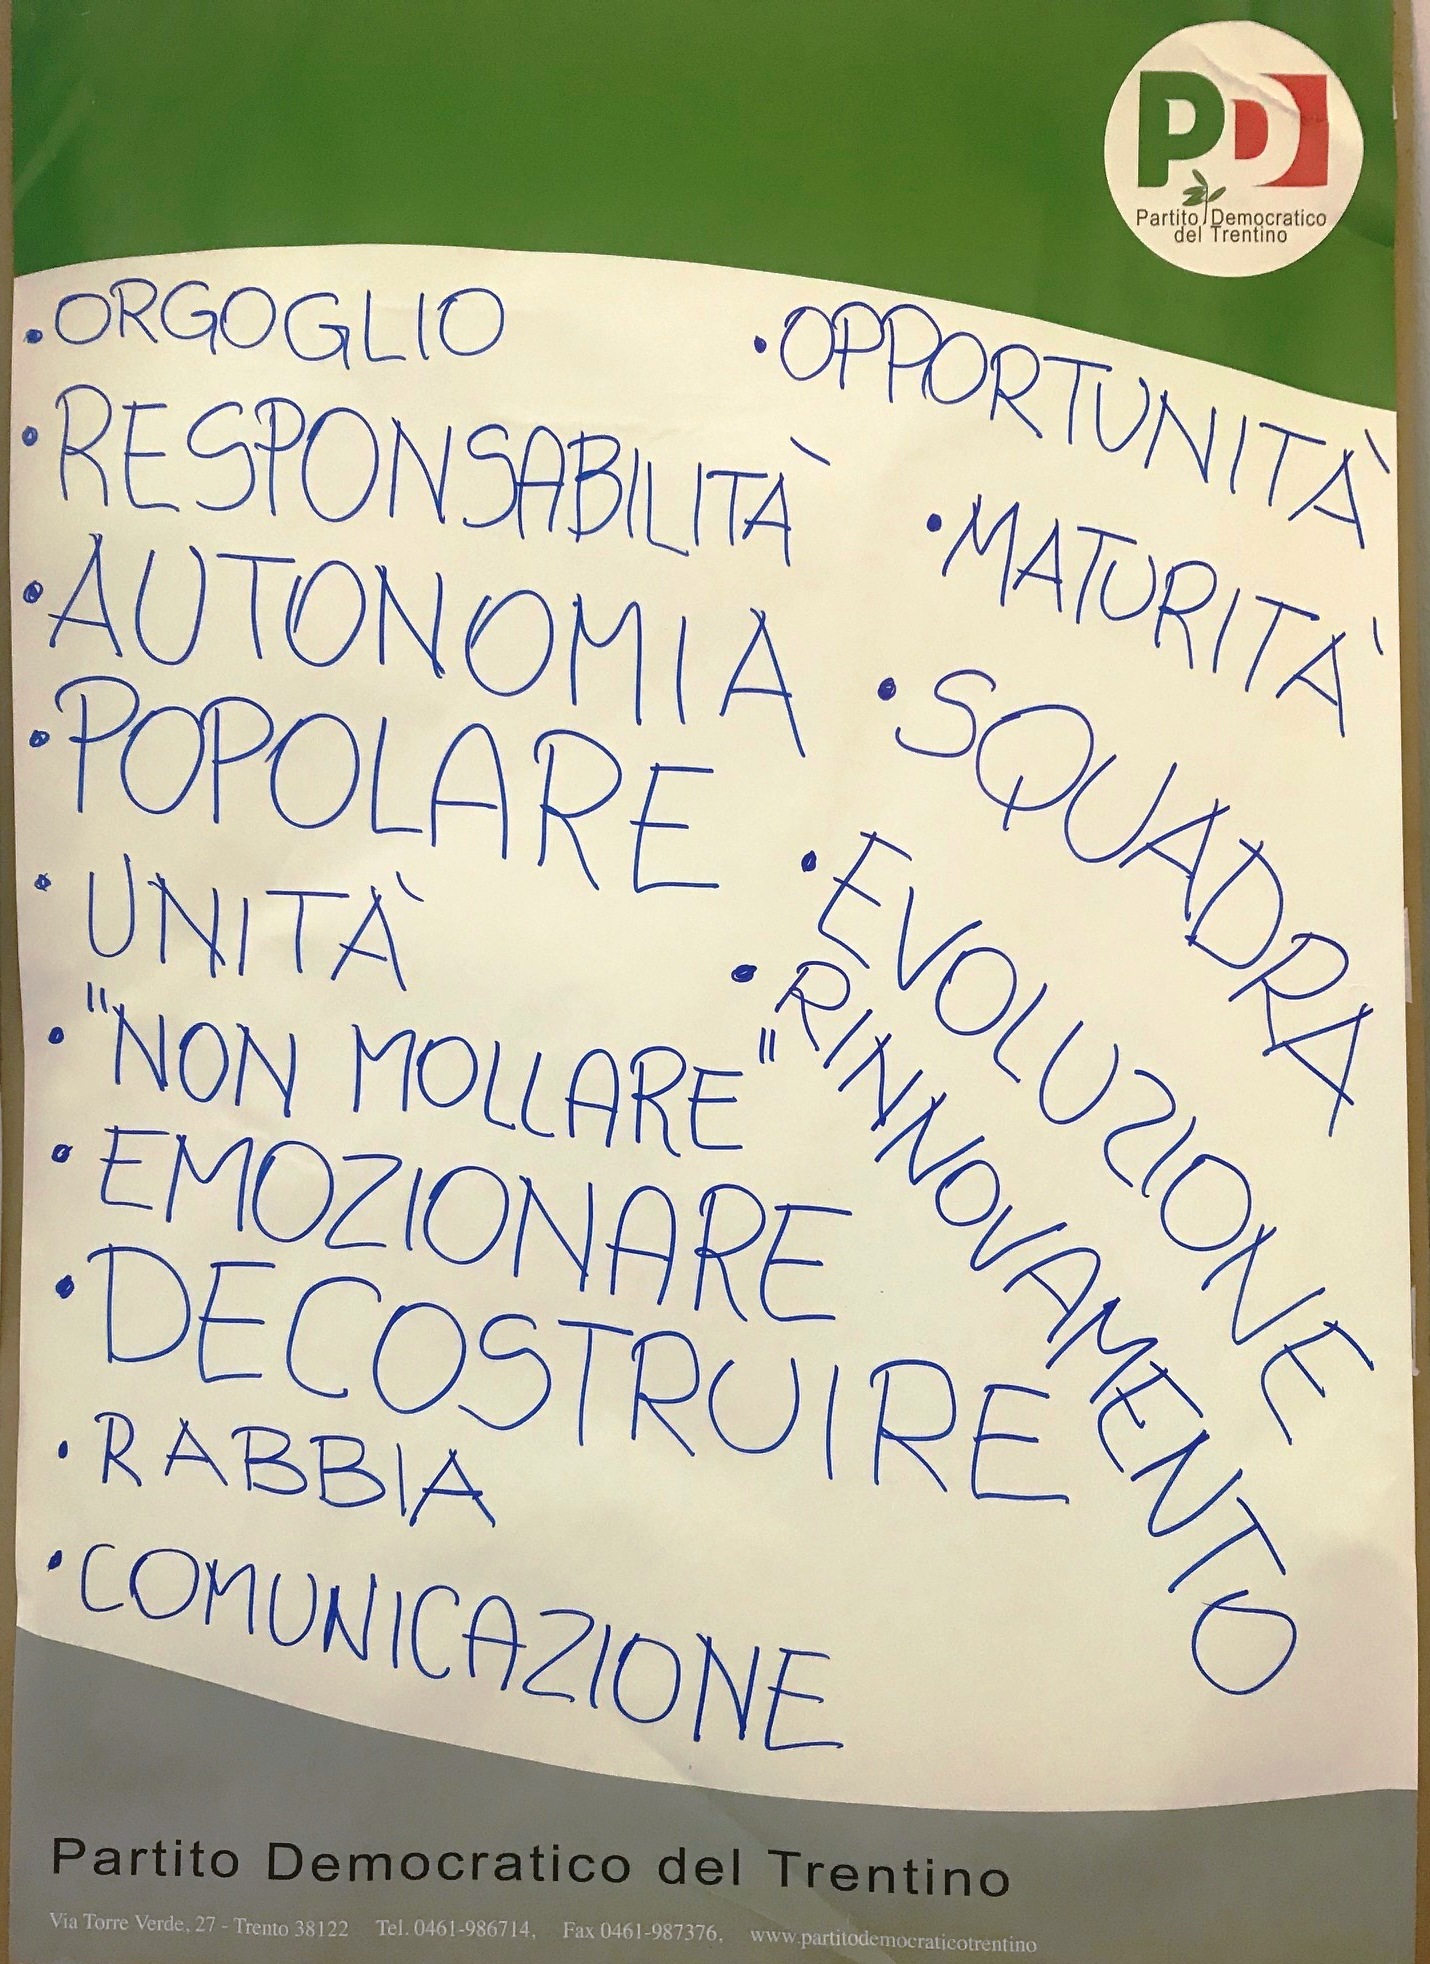 PD
Partito Democratico
del Trentino
• ORGOGLIO
• RESPONSABILITÀ
• AUTONOMIA
• POPOLARE
• UNITÀ
• "NON MOLLARE"
• EMOZIONARE
• DECOSTRUIRE
• RABBIA
• COMUNICAZIONE
• OPPORTUNITÀ
• MATURITÀ
• SQUADRA
• EVOLUZIONE
• RINNOVAMENTO
Partito Democratico del Trentino
Via Torre Verde, 27 - Trento 38122 Tel. 0461-986714, Fax 0461-987376, www.partitodemocraticotrentino